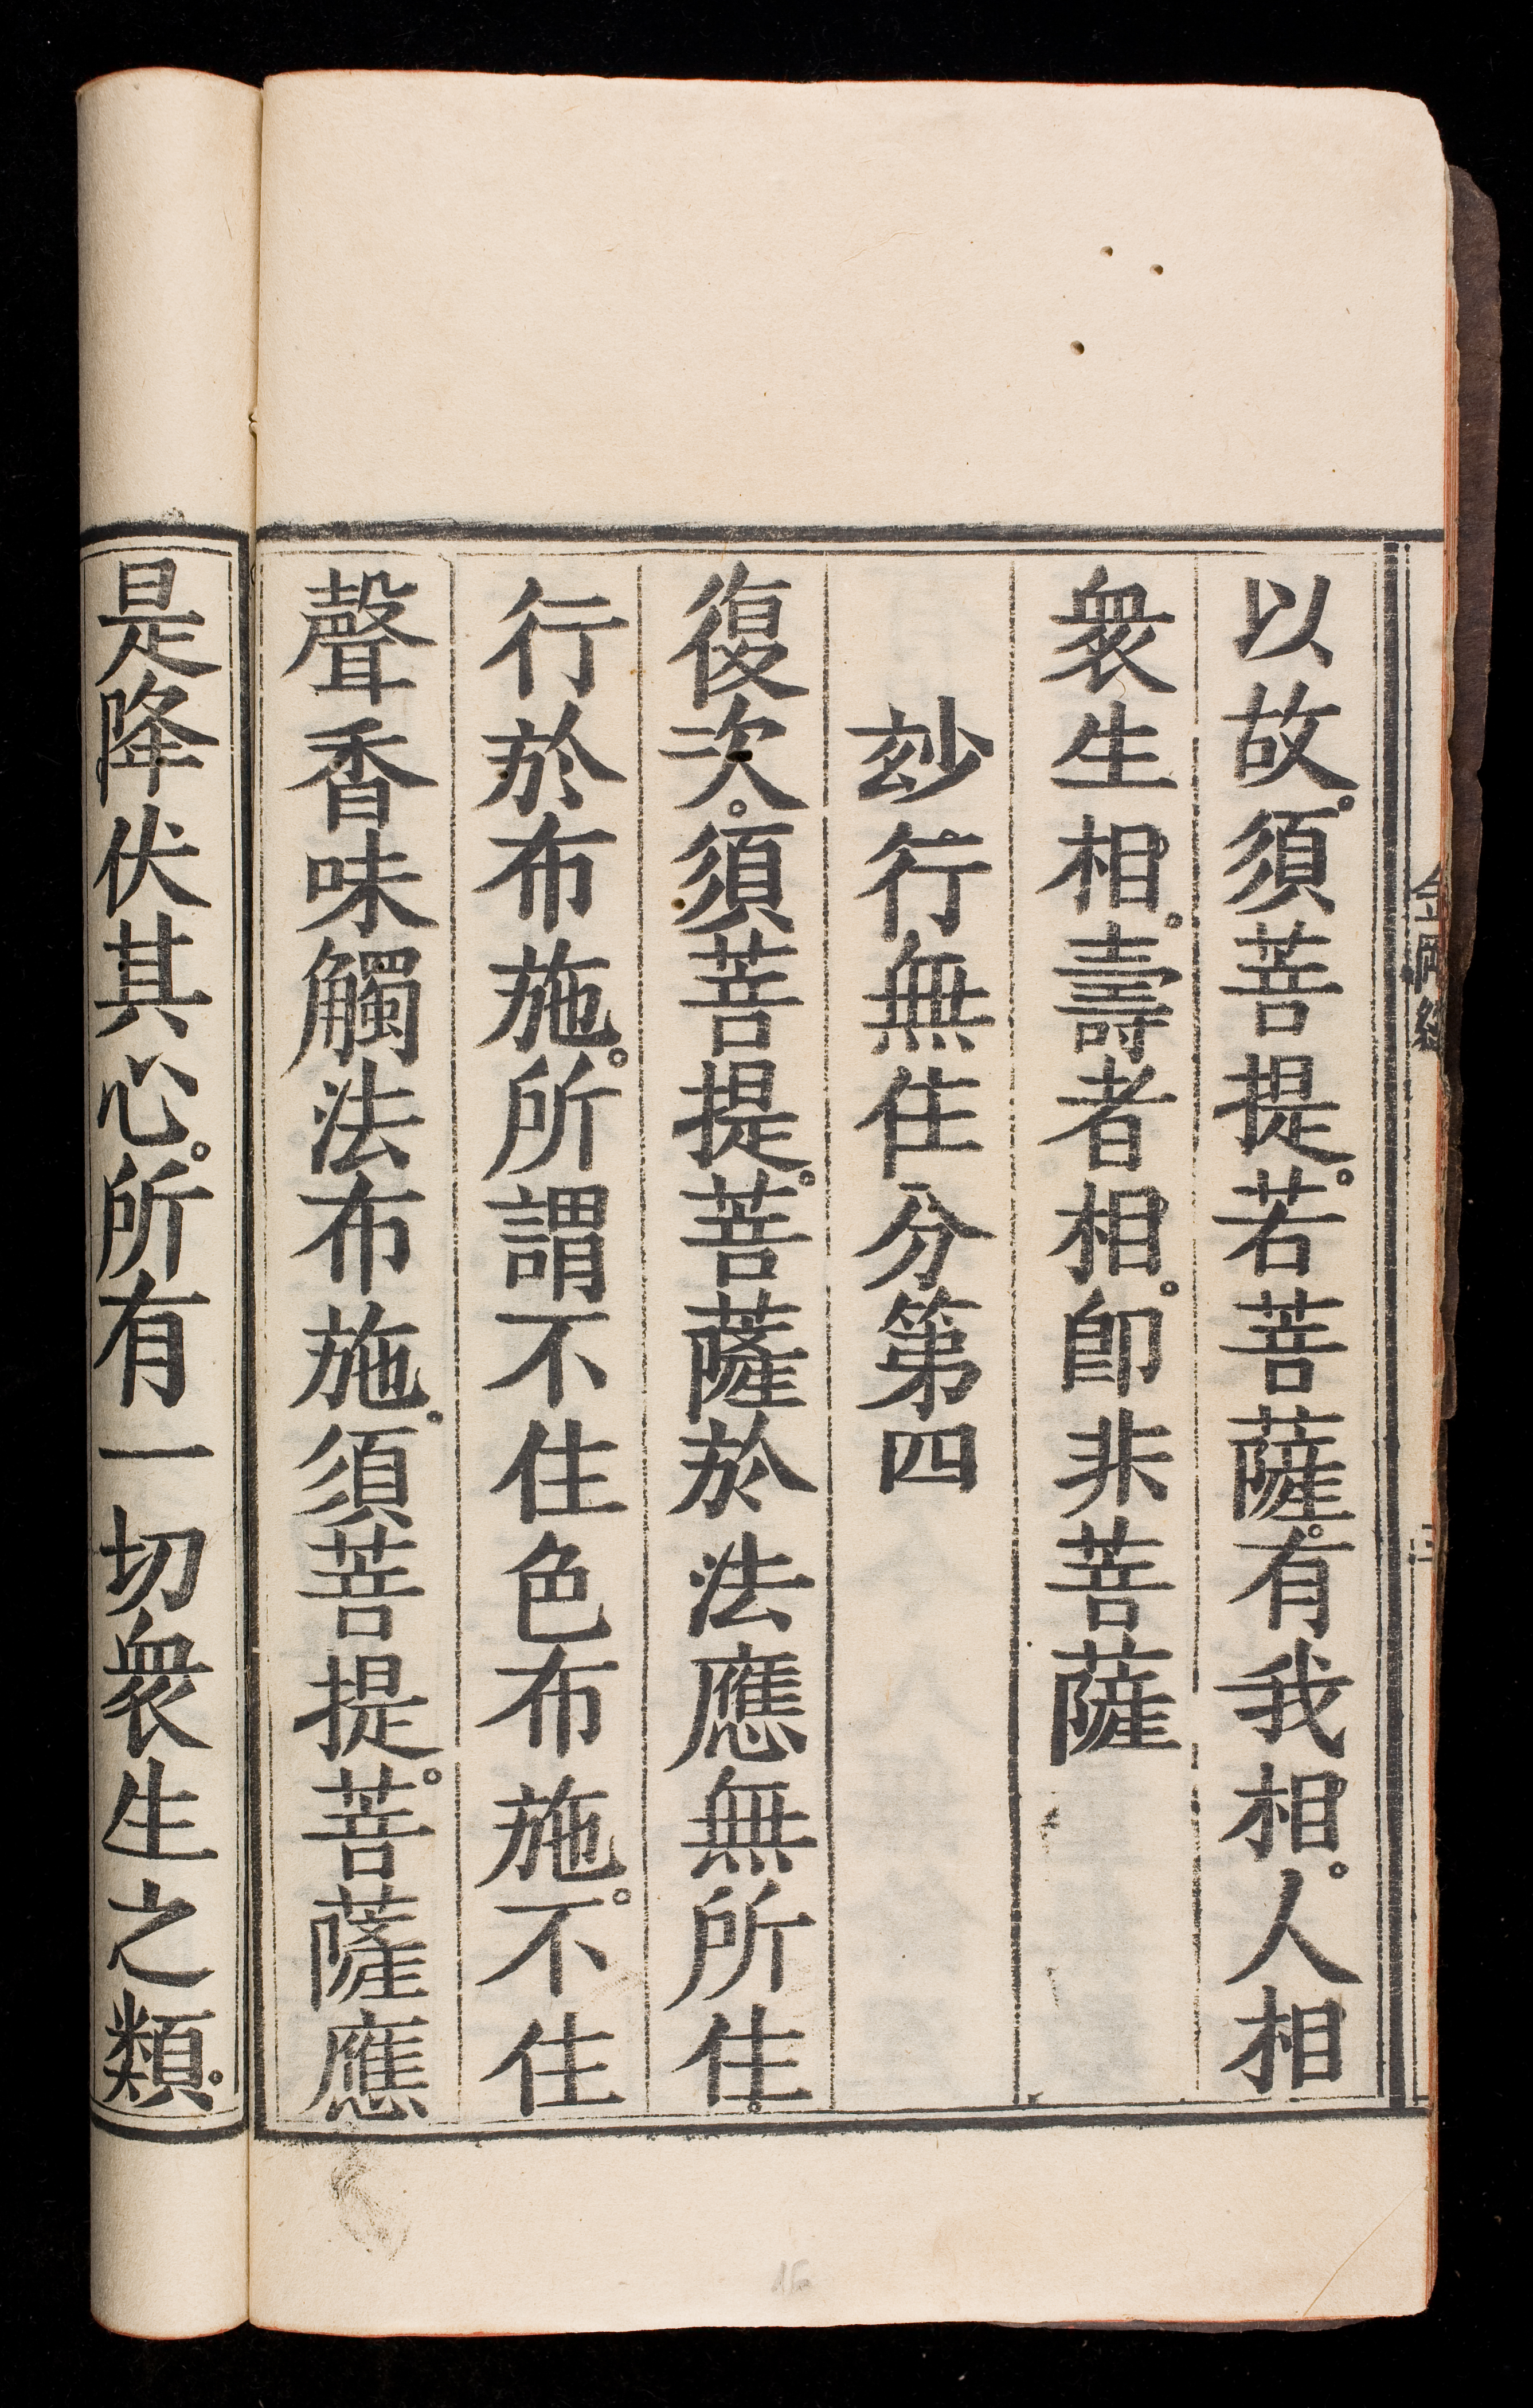 金剛經
以故。須菩提。若菩薩。有我相。人相
衆生相。壽者相。卽非菩薩
玅行無住分第四
復次。須菩提。菩薩於法應無所住。
行於布施。所謂不住色布施。不住
聲香味觸法布施。須菩提。菩薩應
是降伏其心。所有一切衆生之類。